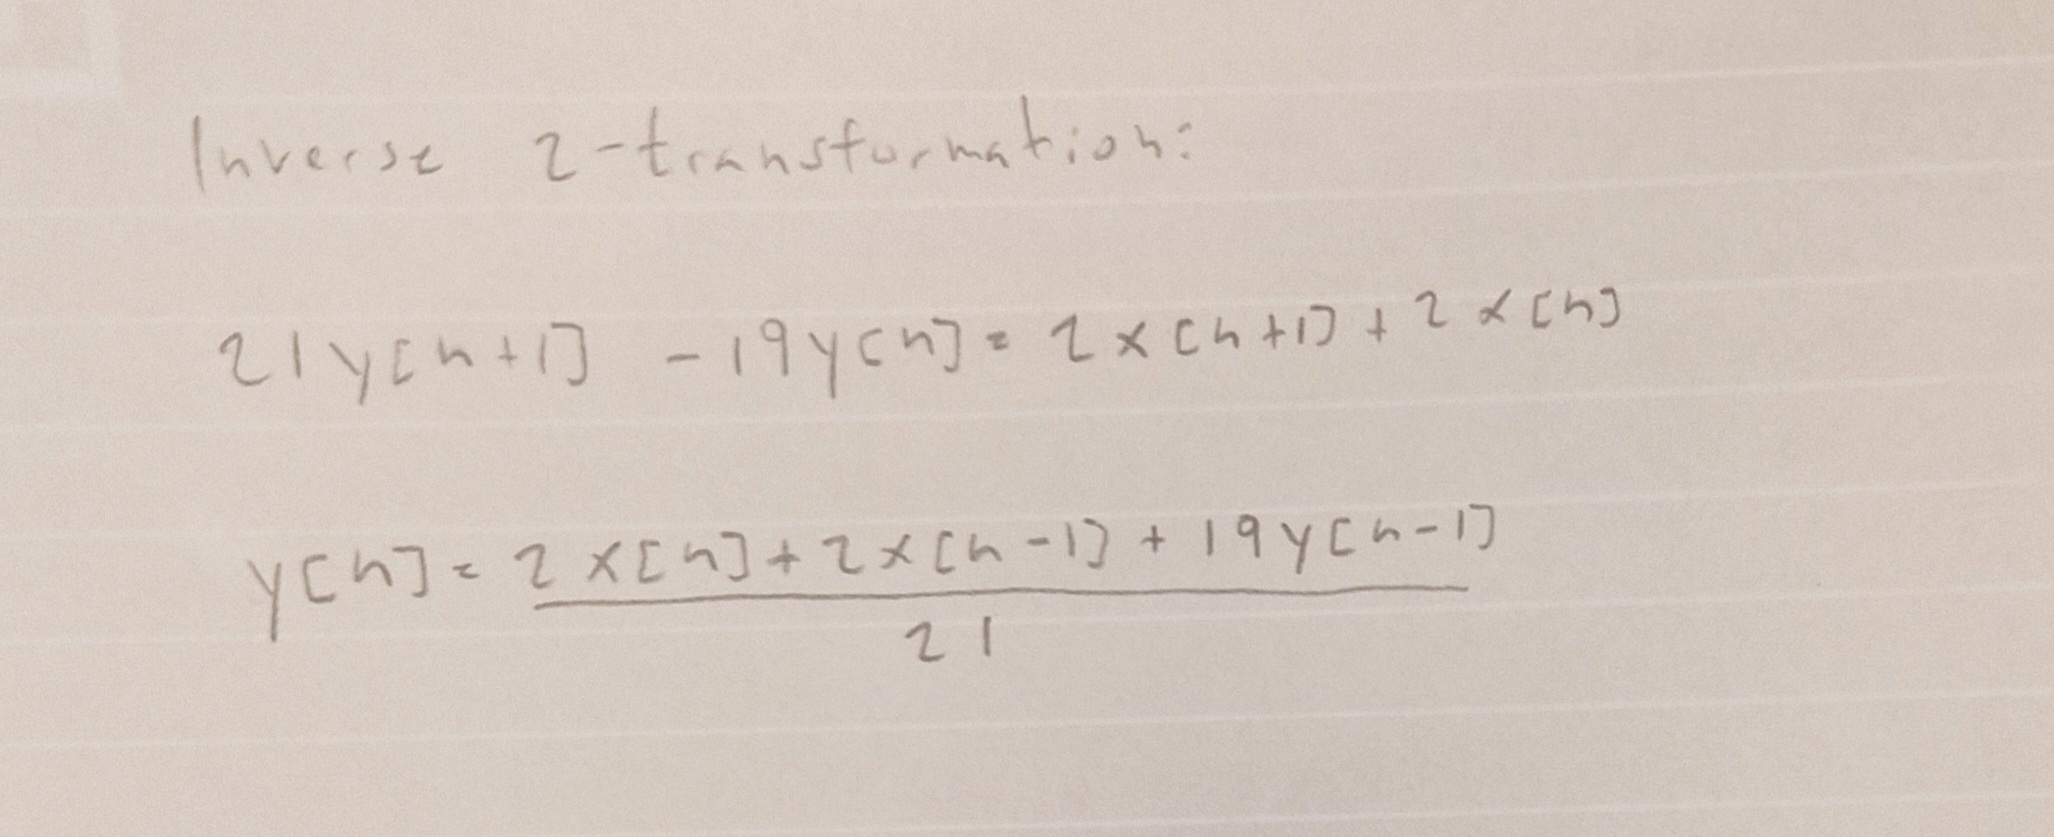 Inverse z-transformation:
21y[n+1] - 19y[n] = 2x[n+1] + 2x[n]
y[n] = 2x[n] + 2x[n-1] + 19y[n-1]
21